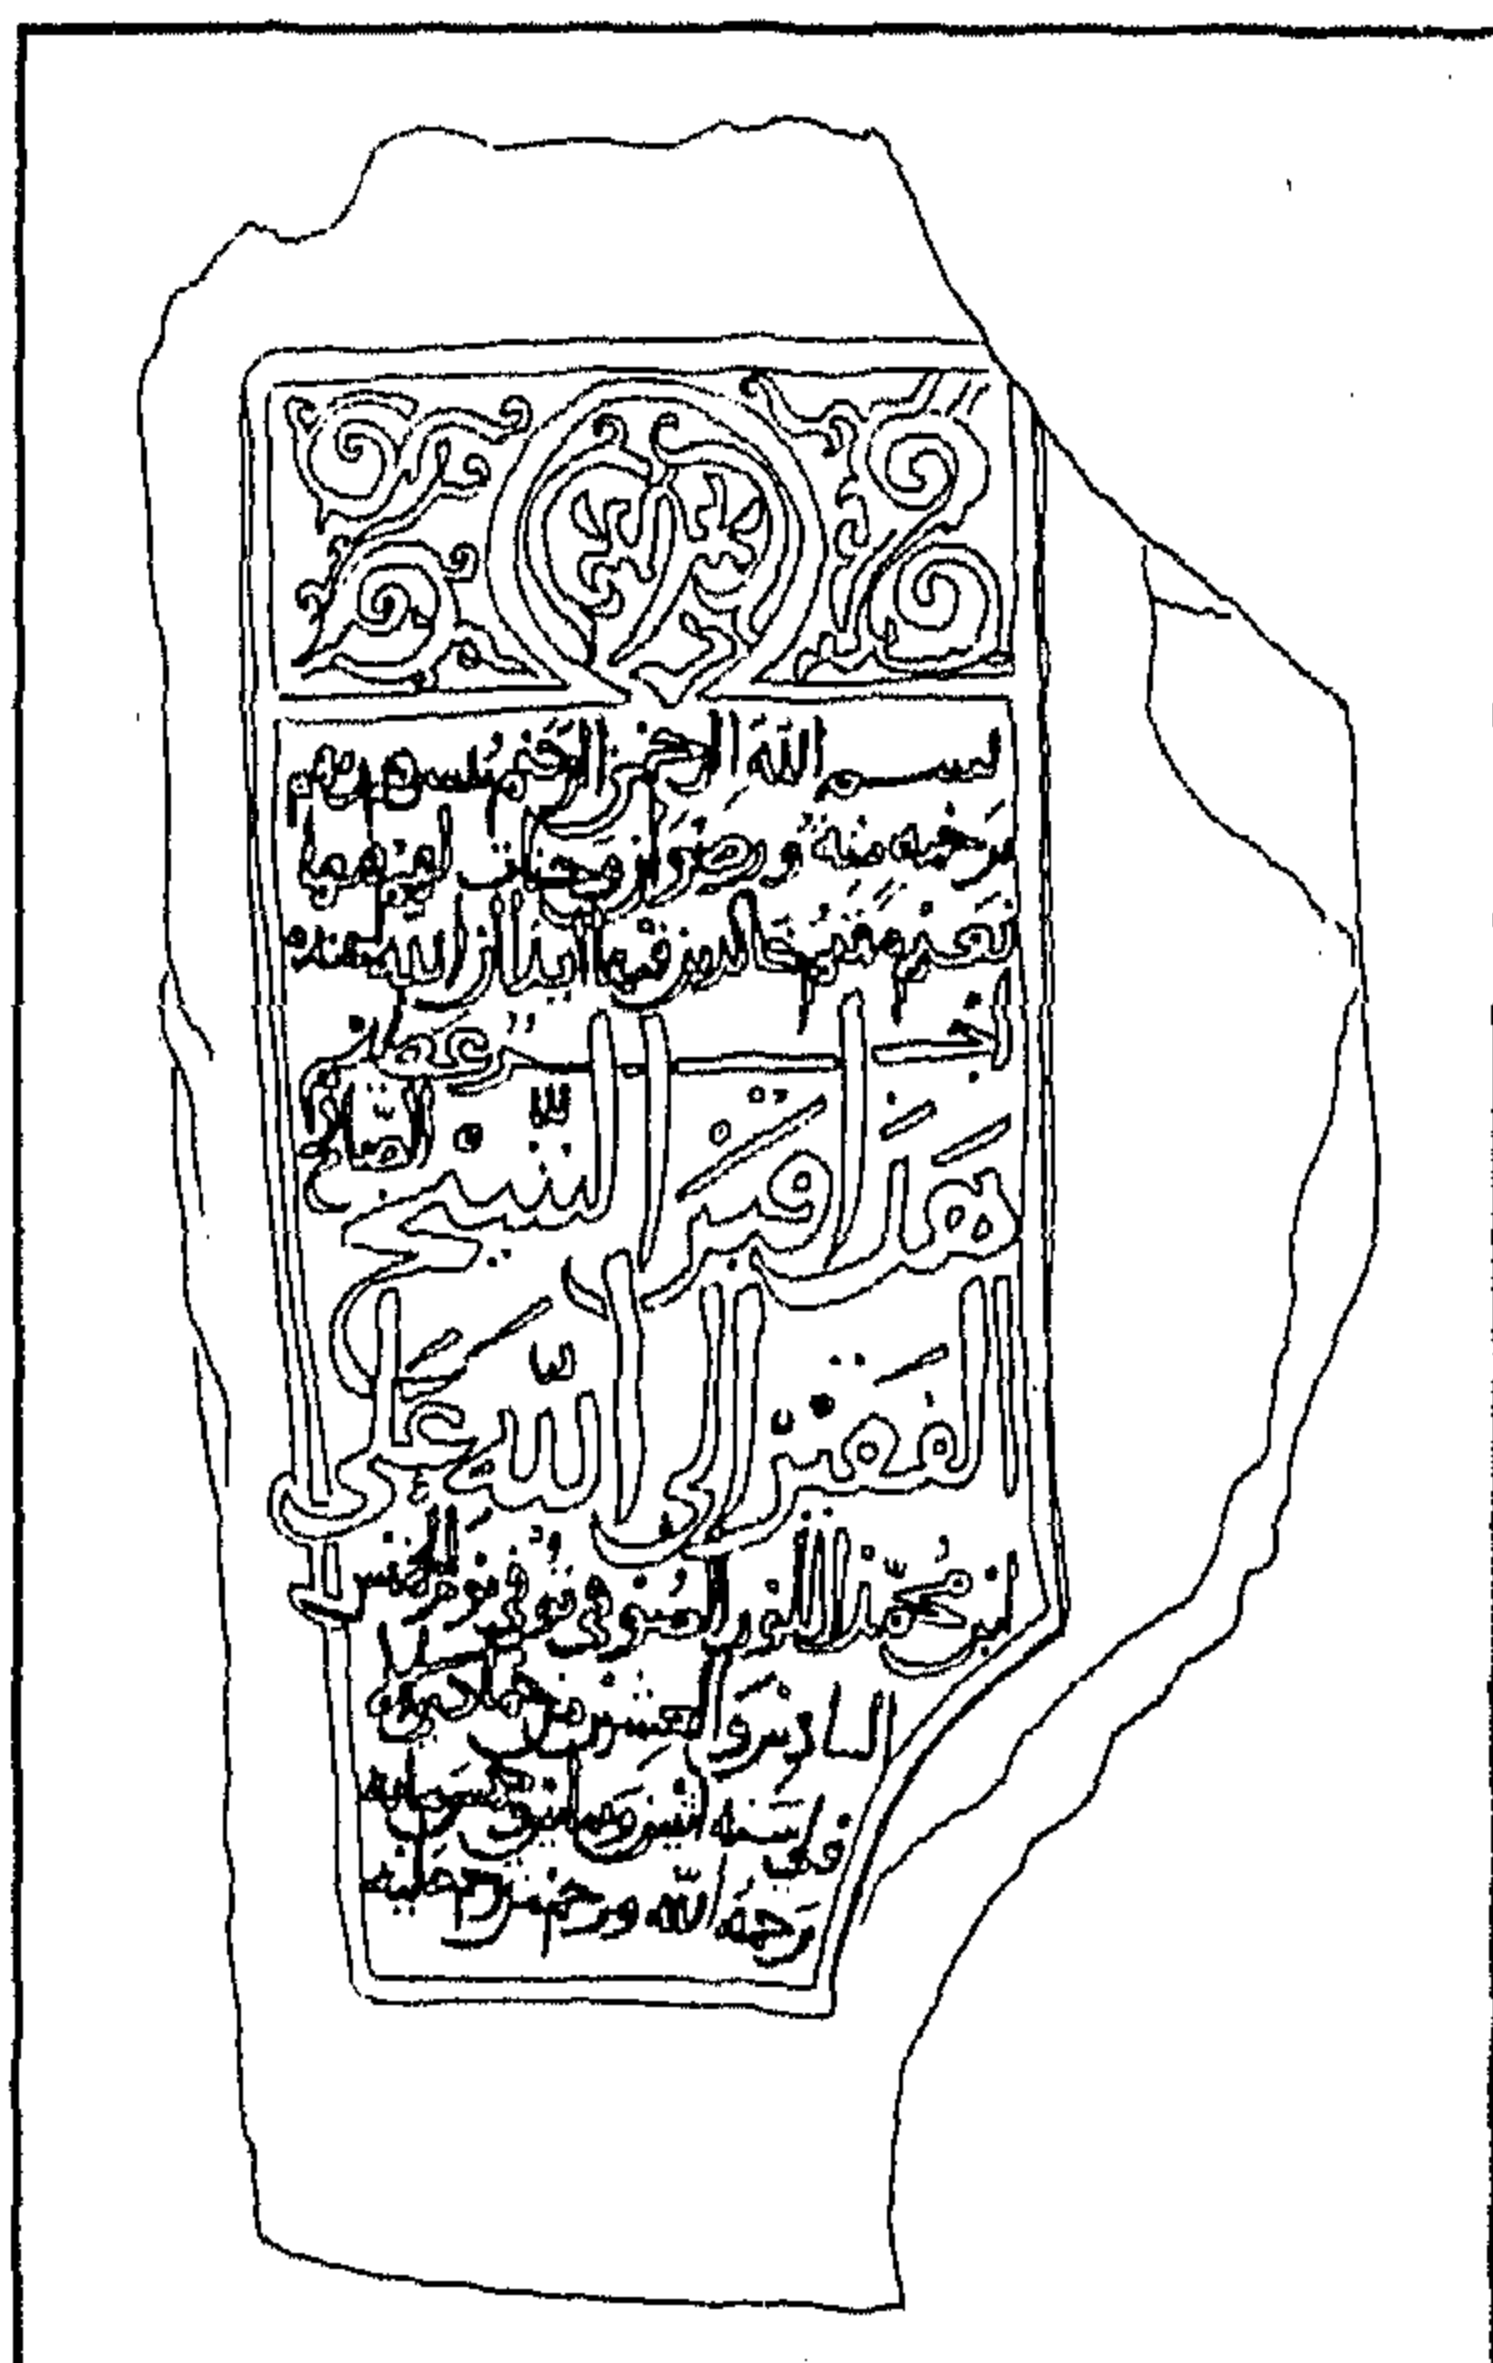 بسم الله الرحمن الرحيم يبشرهم ربهم
برحمة منه ورضوان وجنات لهم فيها
نعيم مقيم خالدين فيها أبدا إن الله عنده
أجر عظيم
هذا قبر الشيخ الصالح
الفقير إلى الله علي
ابن محمد الصوفي توفي يوم الخميس
السادس والعشرين من جمادى
في سنة
رحمه الله ورحم من ترحم عليه